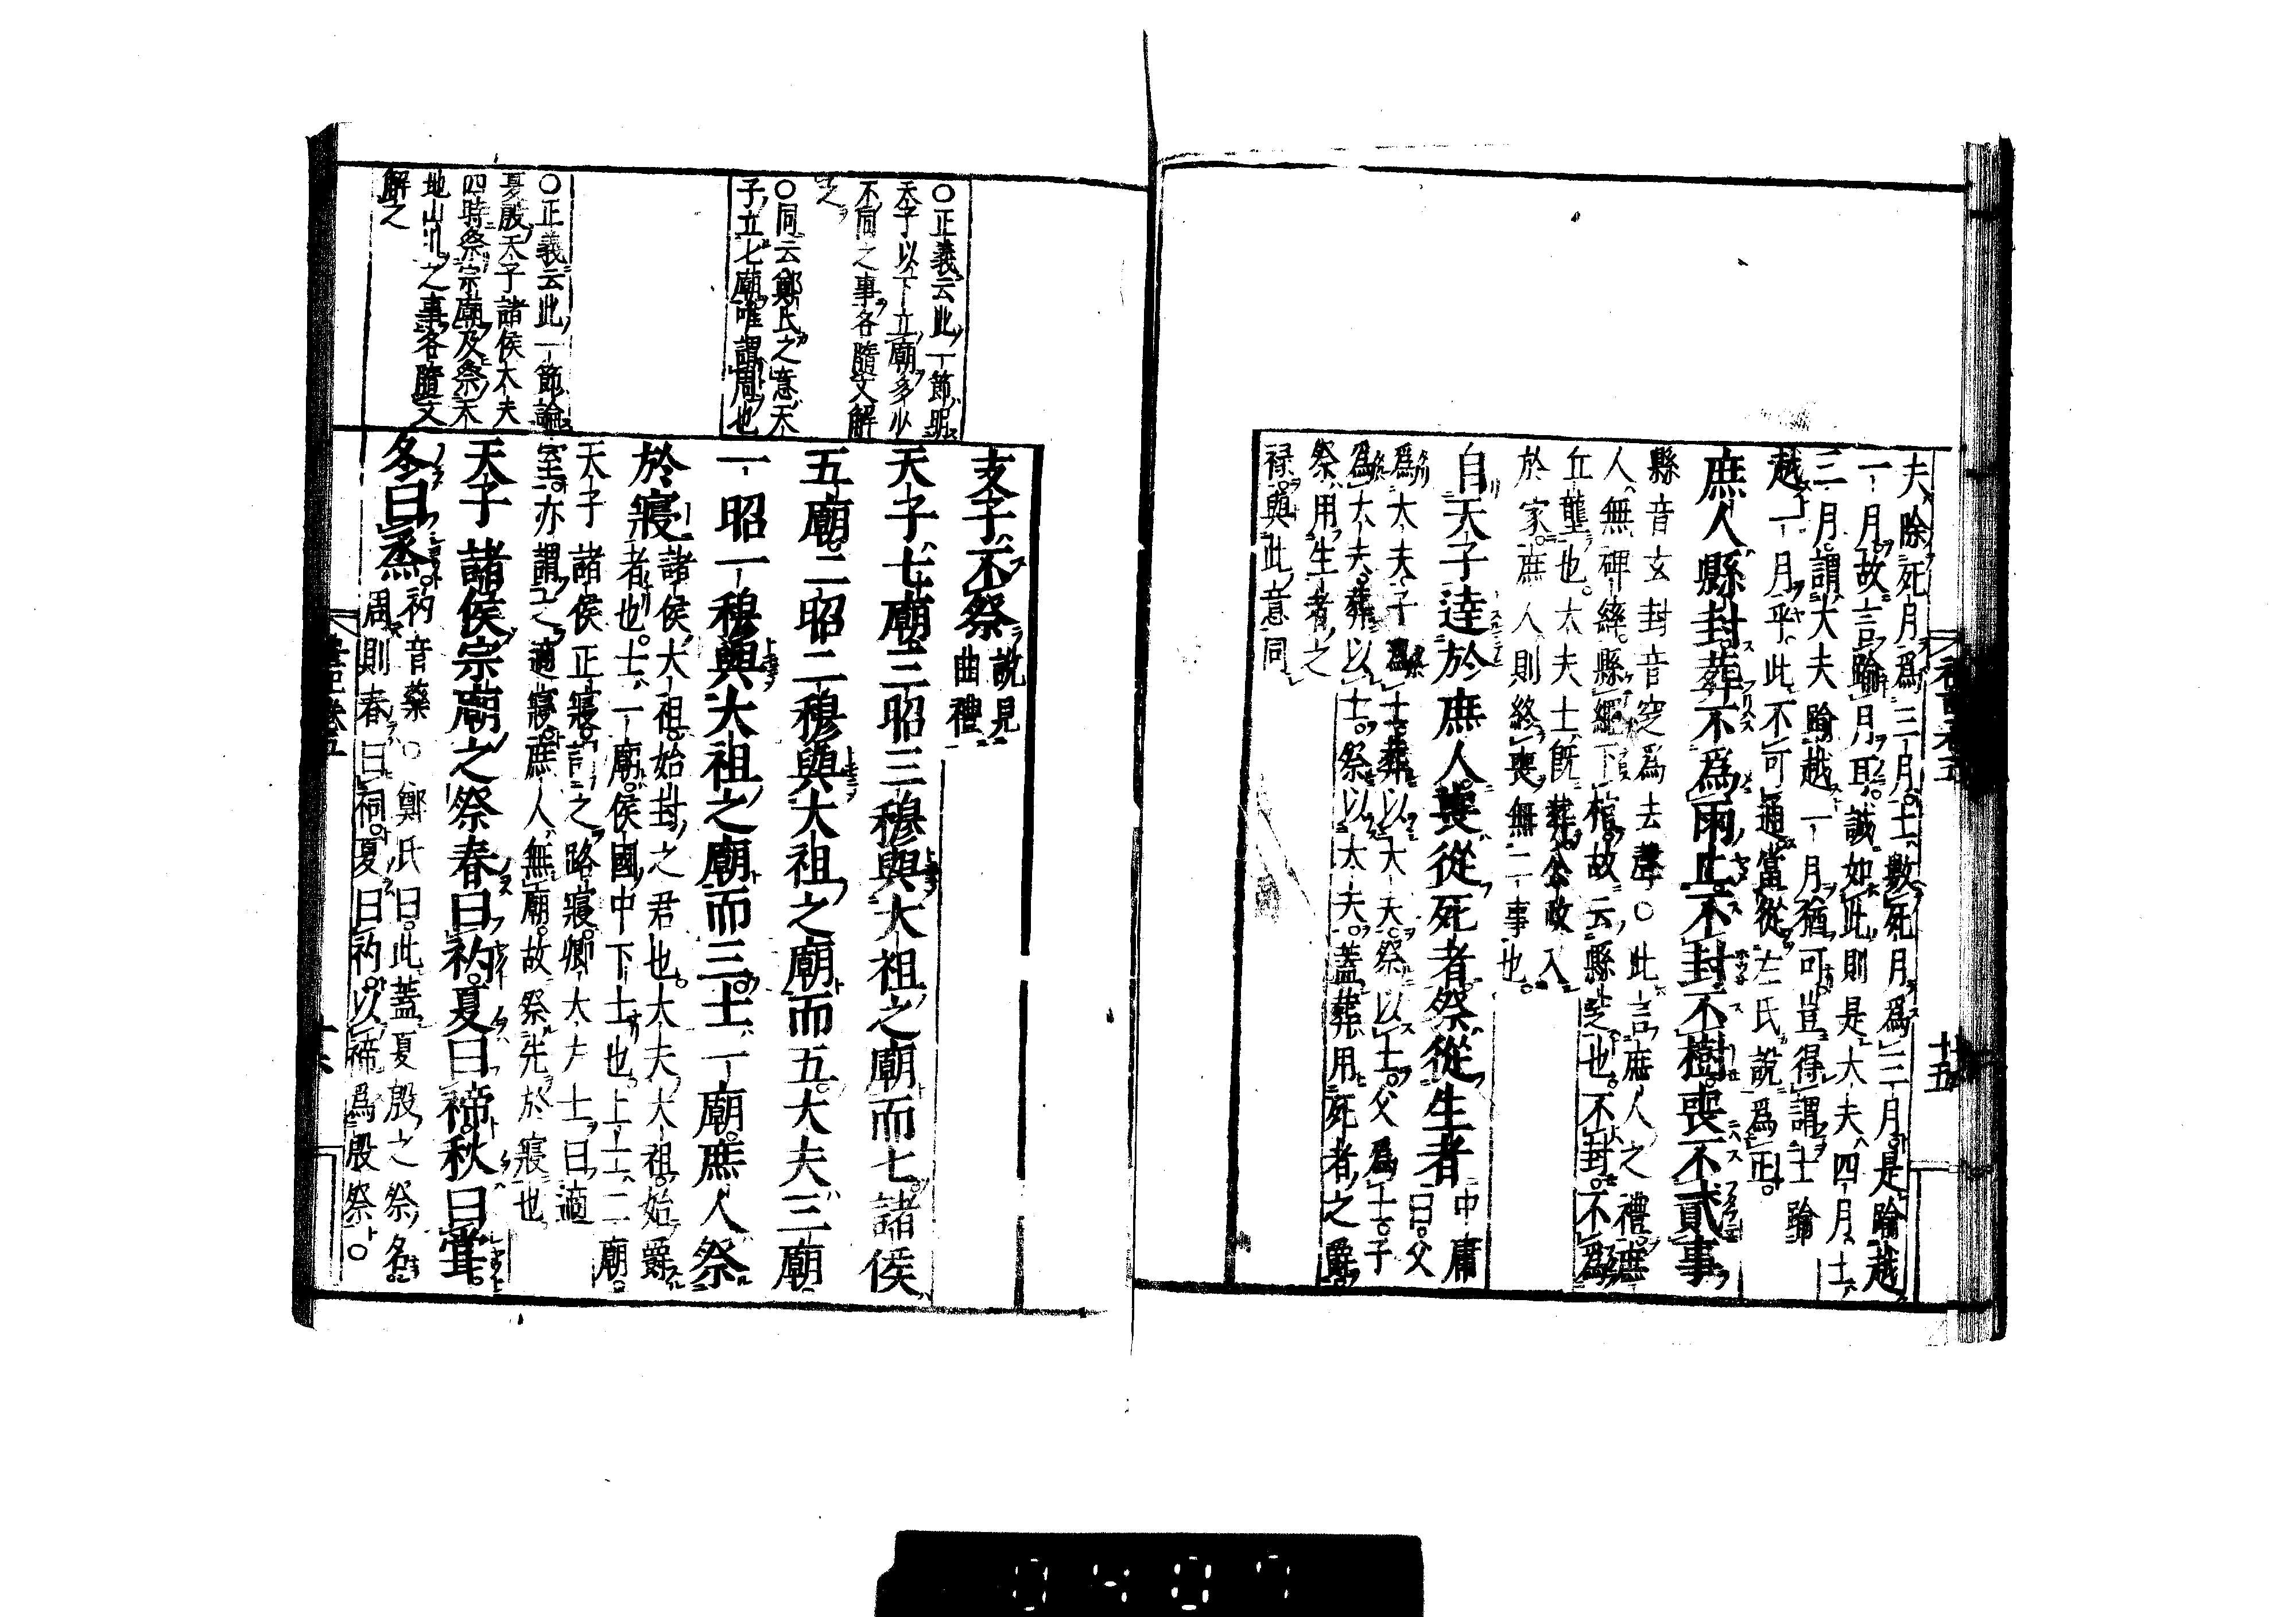 夫除死月爲三月士數死月爲三月是踰越
一月故言踰月耳誠如此則是大夫四月士
三月謂大夫踰越一月猶可豈得謂士踰
越一月乎此不可通當從左氏說爲正
庶人縣封葬不爲雨止不封不樹喪不貳事
縣音玄封音窆爲去聲○此言庶人之禮庶
人無碑繂縣繩下棺故云縣窆也不封不爲
丘壟也大夫士旣葬公政入
於家庶人則終喪無二事也
自天子達於庶人喪從死者祭從生者
中庸
曰父
爲大夫子爲士葬以大夫祭以士父爲士子
爲大夫葬以士祭以大夫蓋葬用死者之爵
祭用生者之
祿與此意同
禮記卷五
十五
○正義云此一節明
天子以下立廟多少
不同之事各隨文解
之
○同云鄭氏之意天
子立七廟唯謂周也
○正義云此一節論
夏殷天子諸侯大夫
四時祭宗廟及祭天
地山川之事各隨文
解之
支子不祭
說見
曲禮
天子七廟三昭三穆與大祖之廟而七諸侯
五廟二昭二穆與大祖之廟而五大夫三廟
一昭一穆與大祖之廟而三士一廟庶人祭
於寢
諸侯大祖始封之君也大夫大祖始爵
者也士一廟侯國中下士也上士二廟
天子諸侯正寢謂之路寢卿大夫士曰適
室亦謂之適寢庶人無廟故祭先於寢也
天子諸侯宗廟之祭春曰礿夏曰禘秋曰嘗
冬曰烝
礿音藥○鄭氏曰此蓋夏殷之祭名
周則春曰祠夏曰礿以禘爲殷祭○
0407